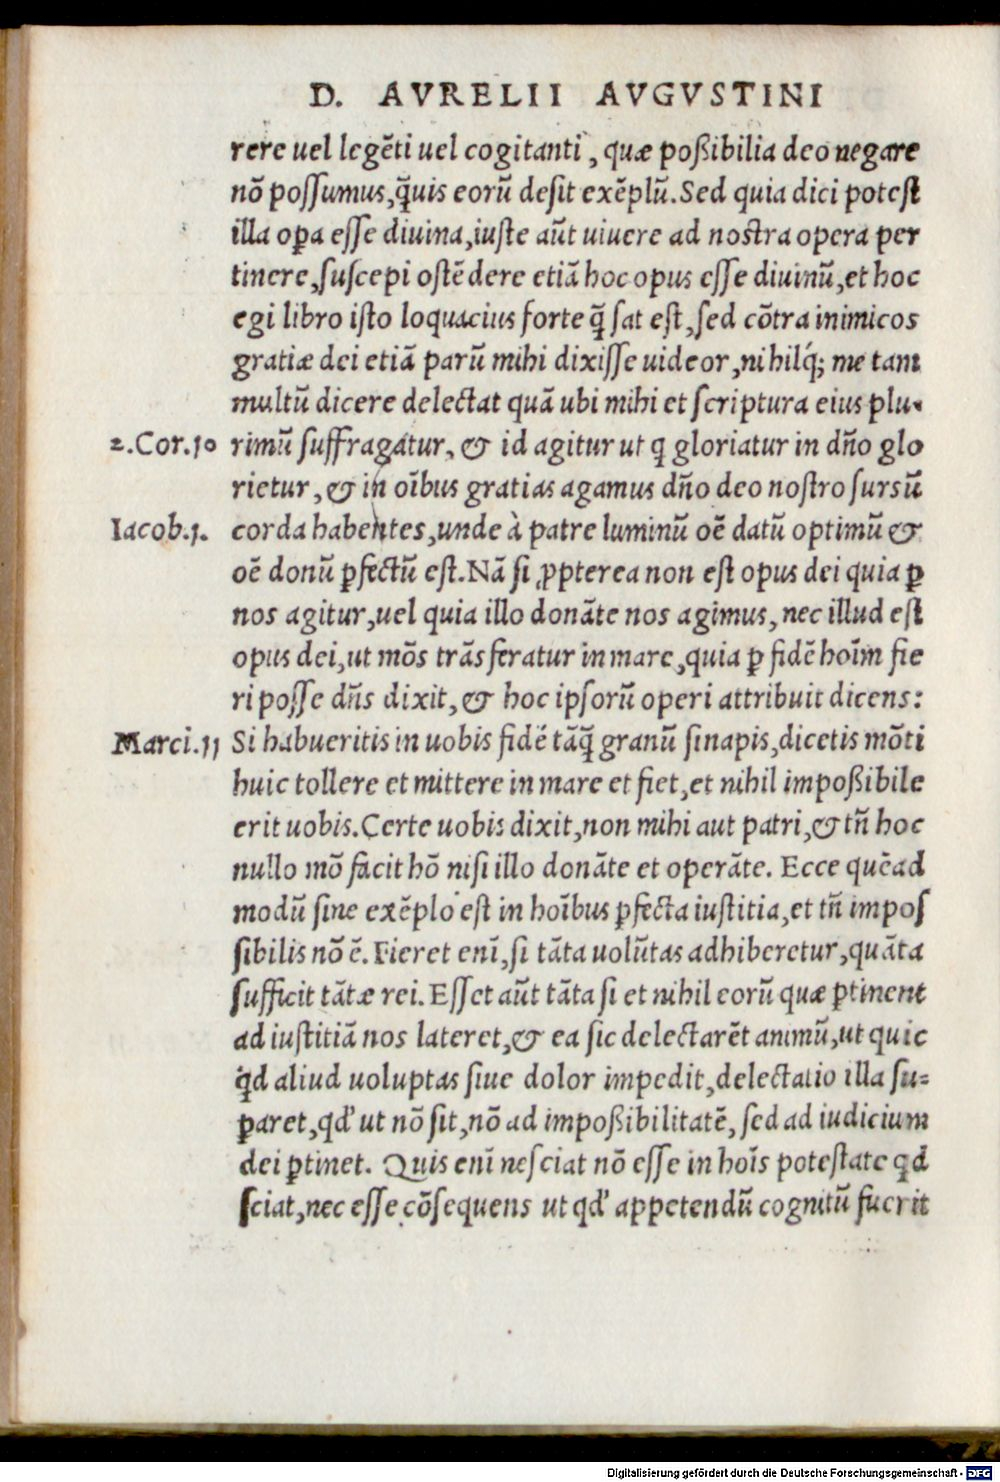 D. AVRELII AVGVSTINI
rere uel legẽti uel cogitanti, quæ poßibilia deo negare
nõ poſſumus, q̃uis eorũ deſit exẽplũ. Sed quia dici poteſt
illa oꝑa eſſe diuina, iuſte aũt uiuere ad noſtra opera per
tinere, ſuſcepi oſtẽdere etiã hoc opus eſſe diuinũ, et hoc
egi libro iſto loquacius forte q̃ ſat eſt, ſed cõtra inimicos
gratiæ dei etiã parũ mihi dixiſſe uideor, nihilq́; me tam
multũ dicere delectat quã ubi mihi et ſcriptura eius plu-
2.Cor.10 rimũ ſuffragatur, & id agitur ut q gloriatur in dño glo
rietur, & in oĩbus gratias agamus dño deo noſtro ſursũ
Iacob.1. corda habentes, unde à patre luminũ oẽ datũ optimũ &
oẽ donũ ꝑfectũ eſt. Nã ſi ꝓpterea non eſt opus dei quia ꝑ
nos agitur, uel quia illo donãte nos agimus, nec illud eſt
opus dei, ut mõs trãsferatur in mare, quia ꝑ fidẽ hoĩm fie
ri poſſe dñs dixit, & hoc ipſorũ operi attribuit dicens:
Marci.11 Si habueritis in uobis fidẽ tãq̃ granũ ſinapis, dicetis mõti
huic tollere et mittere in mare et fiet, et nihil impoßibile
erit uobis. Certe uobis dixit, non mihi aut patri, & tñ hoc
nullo mõ facit hõ niſi illo donãte et operãte. Ecce quẽad
modũ ſine exẽplo eſt in hoĩbus ꝑfecta iuſtitia, et tñ impoſ
ſibilis nõ ẽ. Fieret enĩ, ſi tãta uolũtas adhiberetur, quãta
ſufficit tãtæ rei. Eſſet aũt tãta ſi et nihil eorũ quæ ꝑtinent
ad iuſtitiã nos lateret, & ea ſic delectarẽt animũ, ut quic
q́d aliud uoluptas ſiue dolor impedit, delectatio illa ſu-
ꝑaret, qd' ut nõ ſit, nõ ad impoßibilitatẽ, ſed ad iudicium
dei ꝑtinet. Quis enĩ neſciat nõ eſſe in hoĩs poteſtate qd
ſciat, nec eſſe cõſequens ut qd' appetendũ cognitũ fuerit
Digitalisierung gefördert durch die Deutsche Forschungsgemeinschaft - DFG